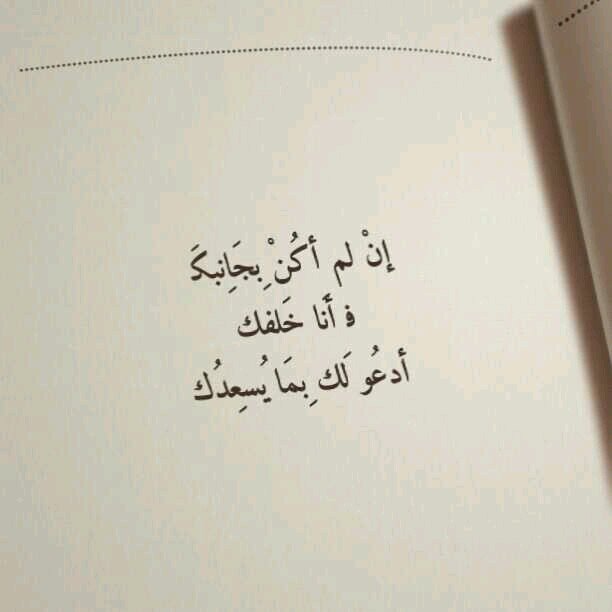 إنْ لم أكُنْ بِجَانِبكَ
ف أنَا خَلفك
أدعُو لَك بِمَا يُسعِدُك